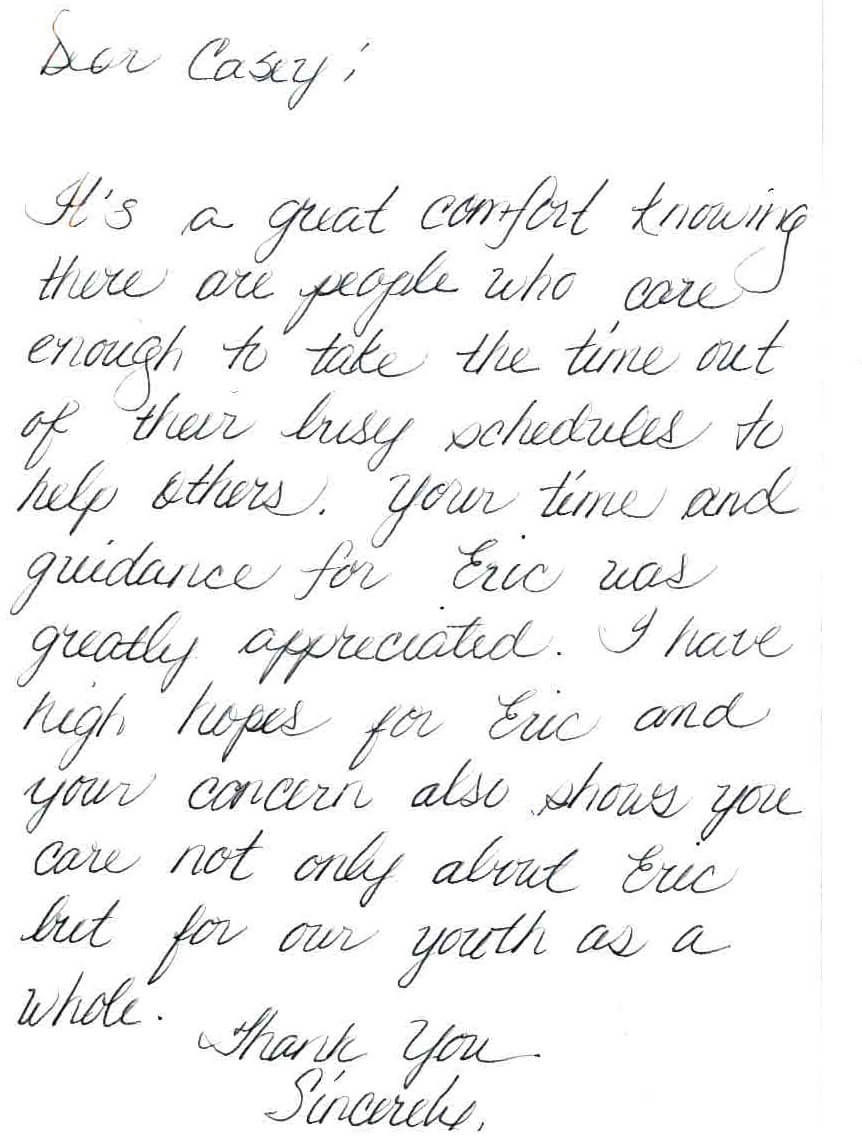 Dear Casey;
It's a great comfort knowing
there are people who care
enough to take the time out
of their busy schedules to
help others. Your time and
guidance for Eric was
greatly appreciated. I have
high hopes for Eric and
your concern also shows you
care not only about Eric
but for our youth as a
whole.
Thank You.
Sincerely,